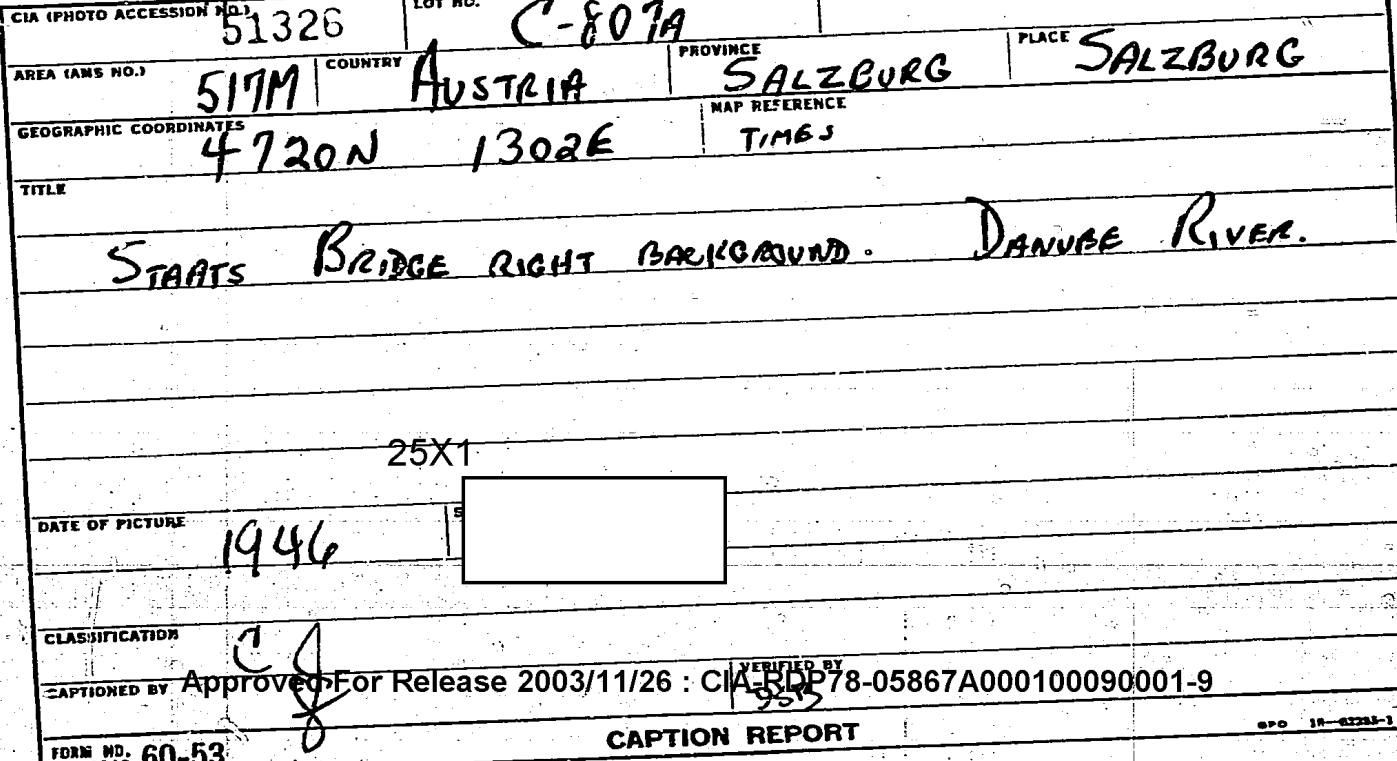 CIA (PHOTO ACCESSION NO.) 51326 LOT NO. C-807A
AREA (AMS NO.) 517M COUNTRY AUSTRIA PROVINCE SALZBURG PLACE SALZBURG
GEOGRAPHIC COORDINATES 4720N 1302E MAP REFERENCE TIMES
TITLE
STAATS BRIDGE RIGHT BACKGROUND. DANUBE RIVER.
25X1
DATE OF PICTURE 1946
CLASSIFICATION C
CAPTIONED BY VERIFIED BY
Approved For Release 2003/11/26 : CIA-RDP78-05867A000100090001-9
FORM NO. 60-53 CAPTION REPORT GPO